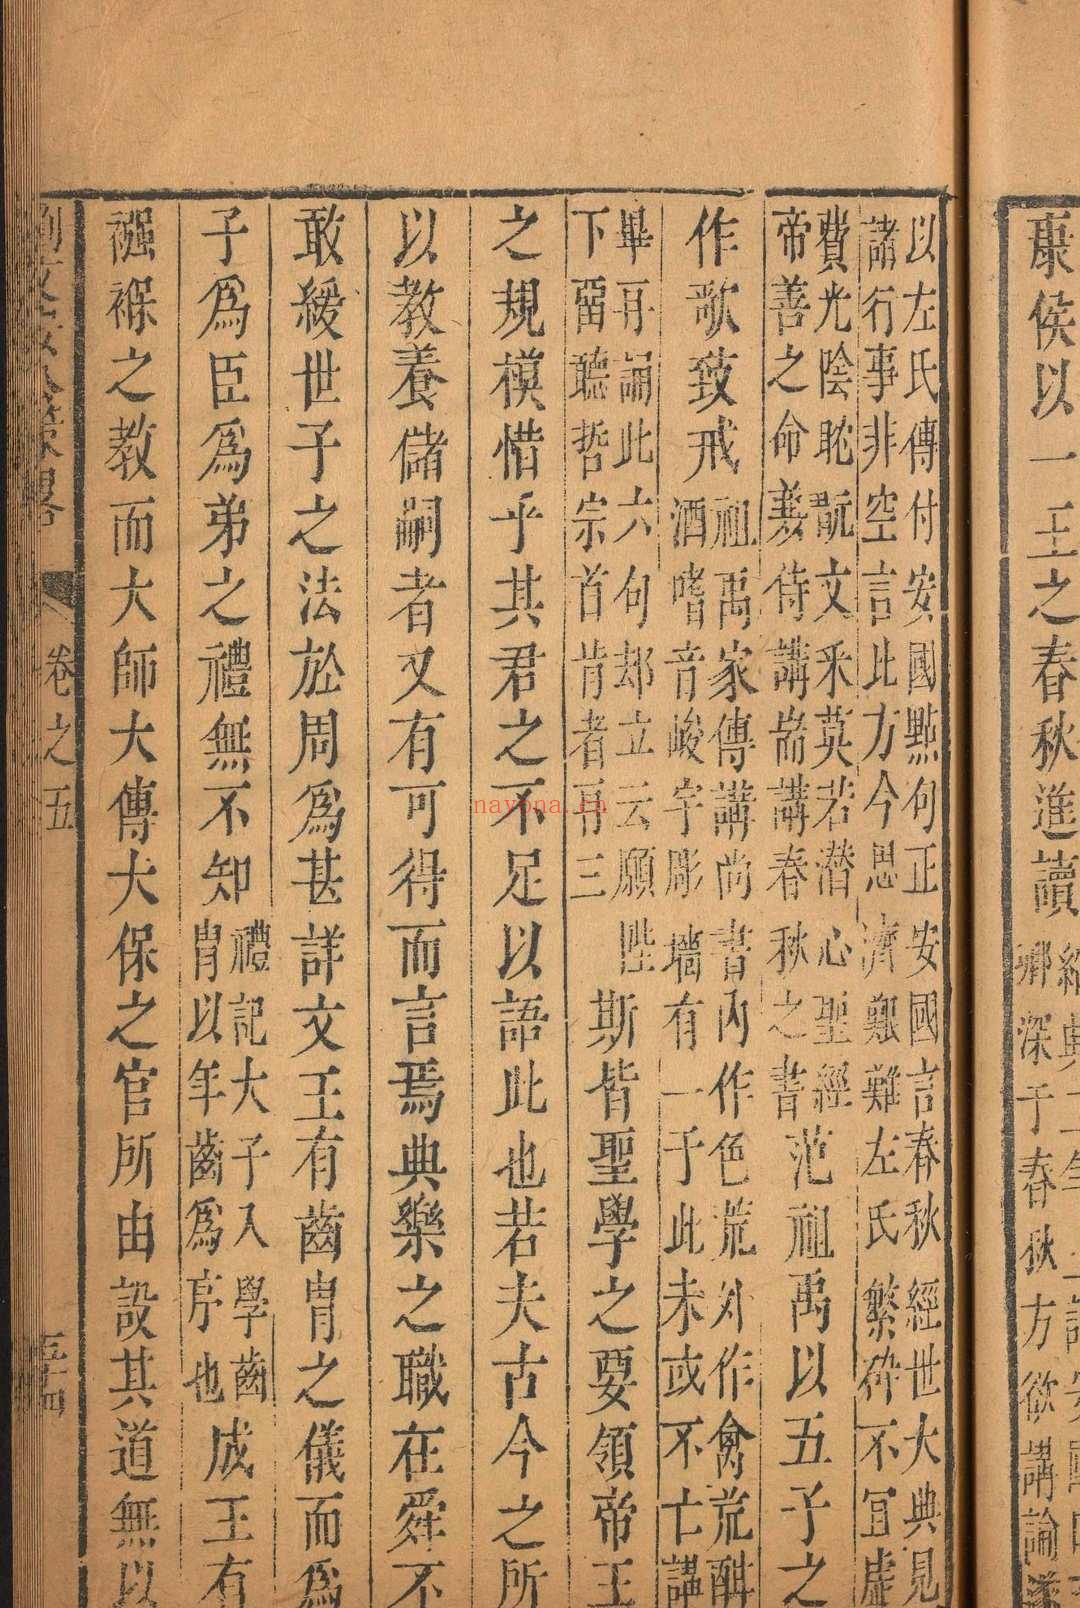 康侯以一王之春秋進讀
鄉深于春秋方欲講論遂
以左氏傳付安國點句正安國言春秋經世大典見
諸行事非空言比方今思濟艱難左氏繁碎不宜虛
費光陰耽翫文采莫若潛心聖經
帝善之命兼侍講耑講春秋之書
范祖禹以五子之
作歌致戒
祖禹家傳講尚書內作色荒外作禽荒酣
酒嗜音峻宇彫墻有一于此未或不亡講
畢再誦此六句却立云願陛
下畱聽哲宗首肯者再三
斯皆聖學之要領帝王
之規模惜乎其君之不足以語此也若夫古今之所
以教養儲嗣者又有可得而言焉典樂之職在舜不
敢緩世子之法於周爲甚詳文王有齒胄之儀而爲
子爲臣爲弟之禮無不知
禮記大子入學齒
胄以年齒爲序也
成王有
襁褓之教而大師大傳大保之官所由設其道無以
卷之五
五十四
nayona.cn